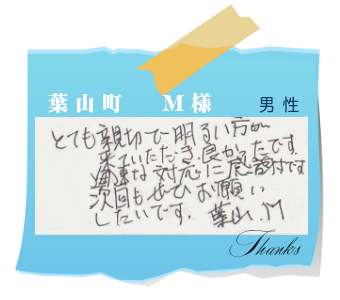 葉山町　M様　男性
とても親切で明るい方が
来ていただき、良かったです。
迅速な対応に感謝です
次回もぜひお願い
したいです。葉山.M
Thanks